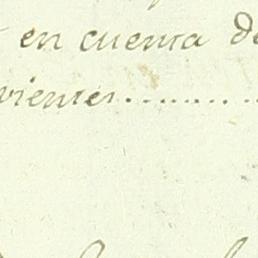 en cuenta de
vientes..........